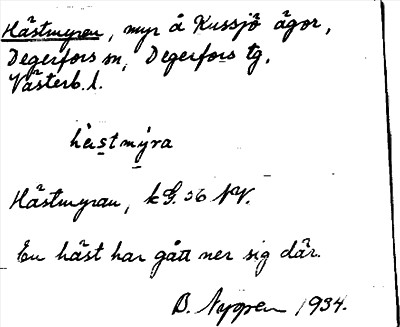 Hästmyran, myr å Kussjö ägor,
Degerfors sn, Degerfors tg,
Västerb. l.
hästmýra
Hästmyran, k G. 56 NV.
En häst har gått ner sig där.
B. Nygren 1934.